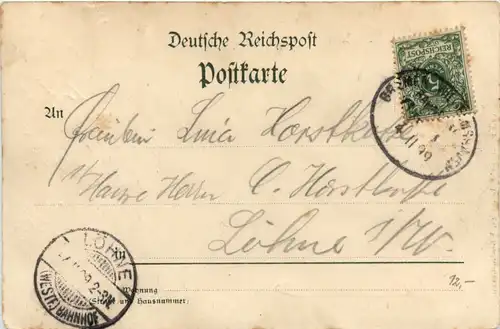 Deutsche Reichspost
Postkarte
REICHSPOST
5
An
Fräulein Luise Horstkotte
Hause Herrn C. Horstkotte
Löhne i/W.
LÖHNE
2-3N
(WESTF.) BAHNHOF
Wohnung
(Straße und Hausnummer)
12,-